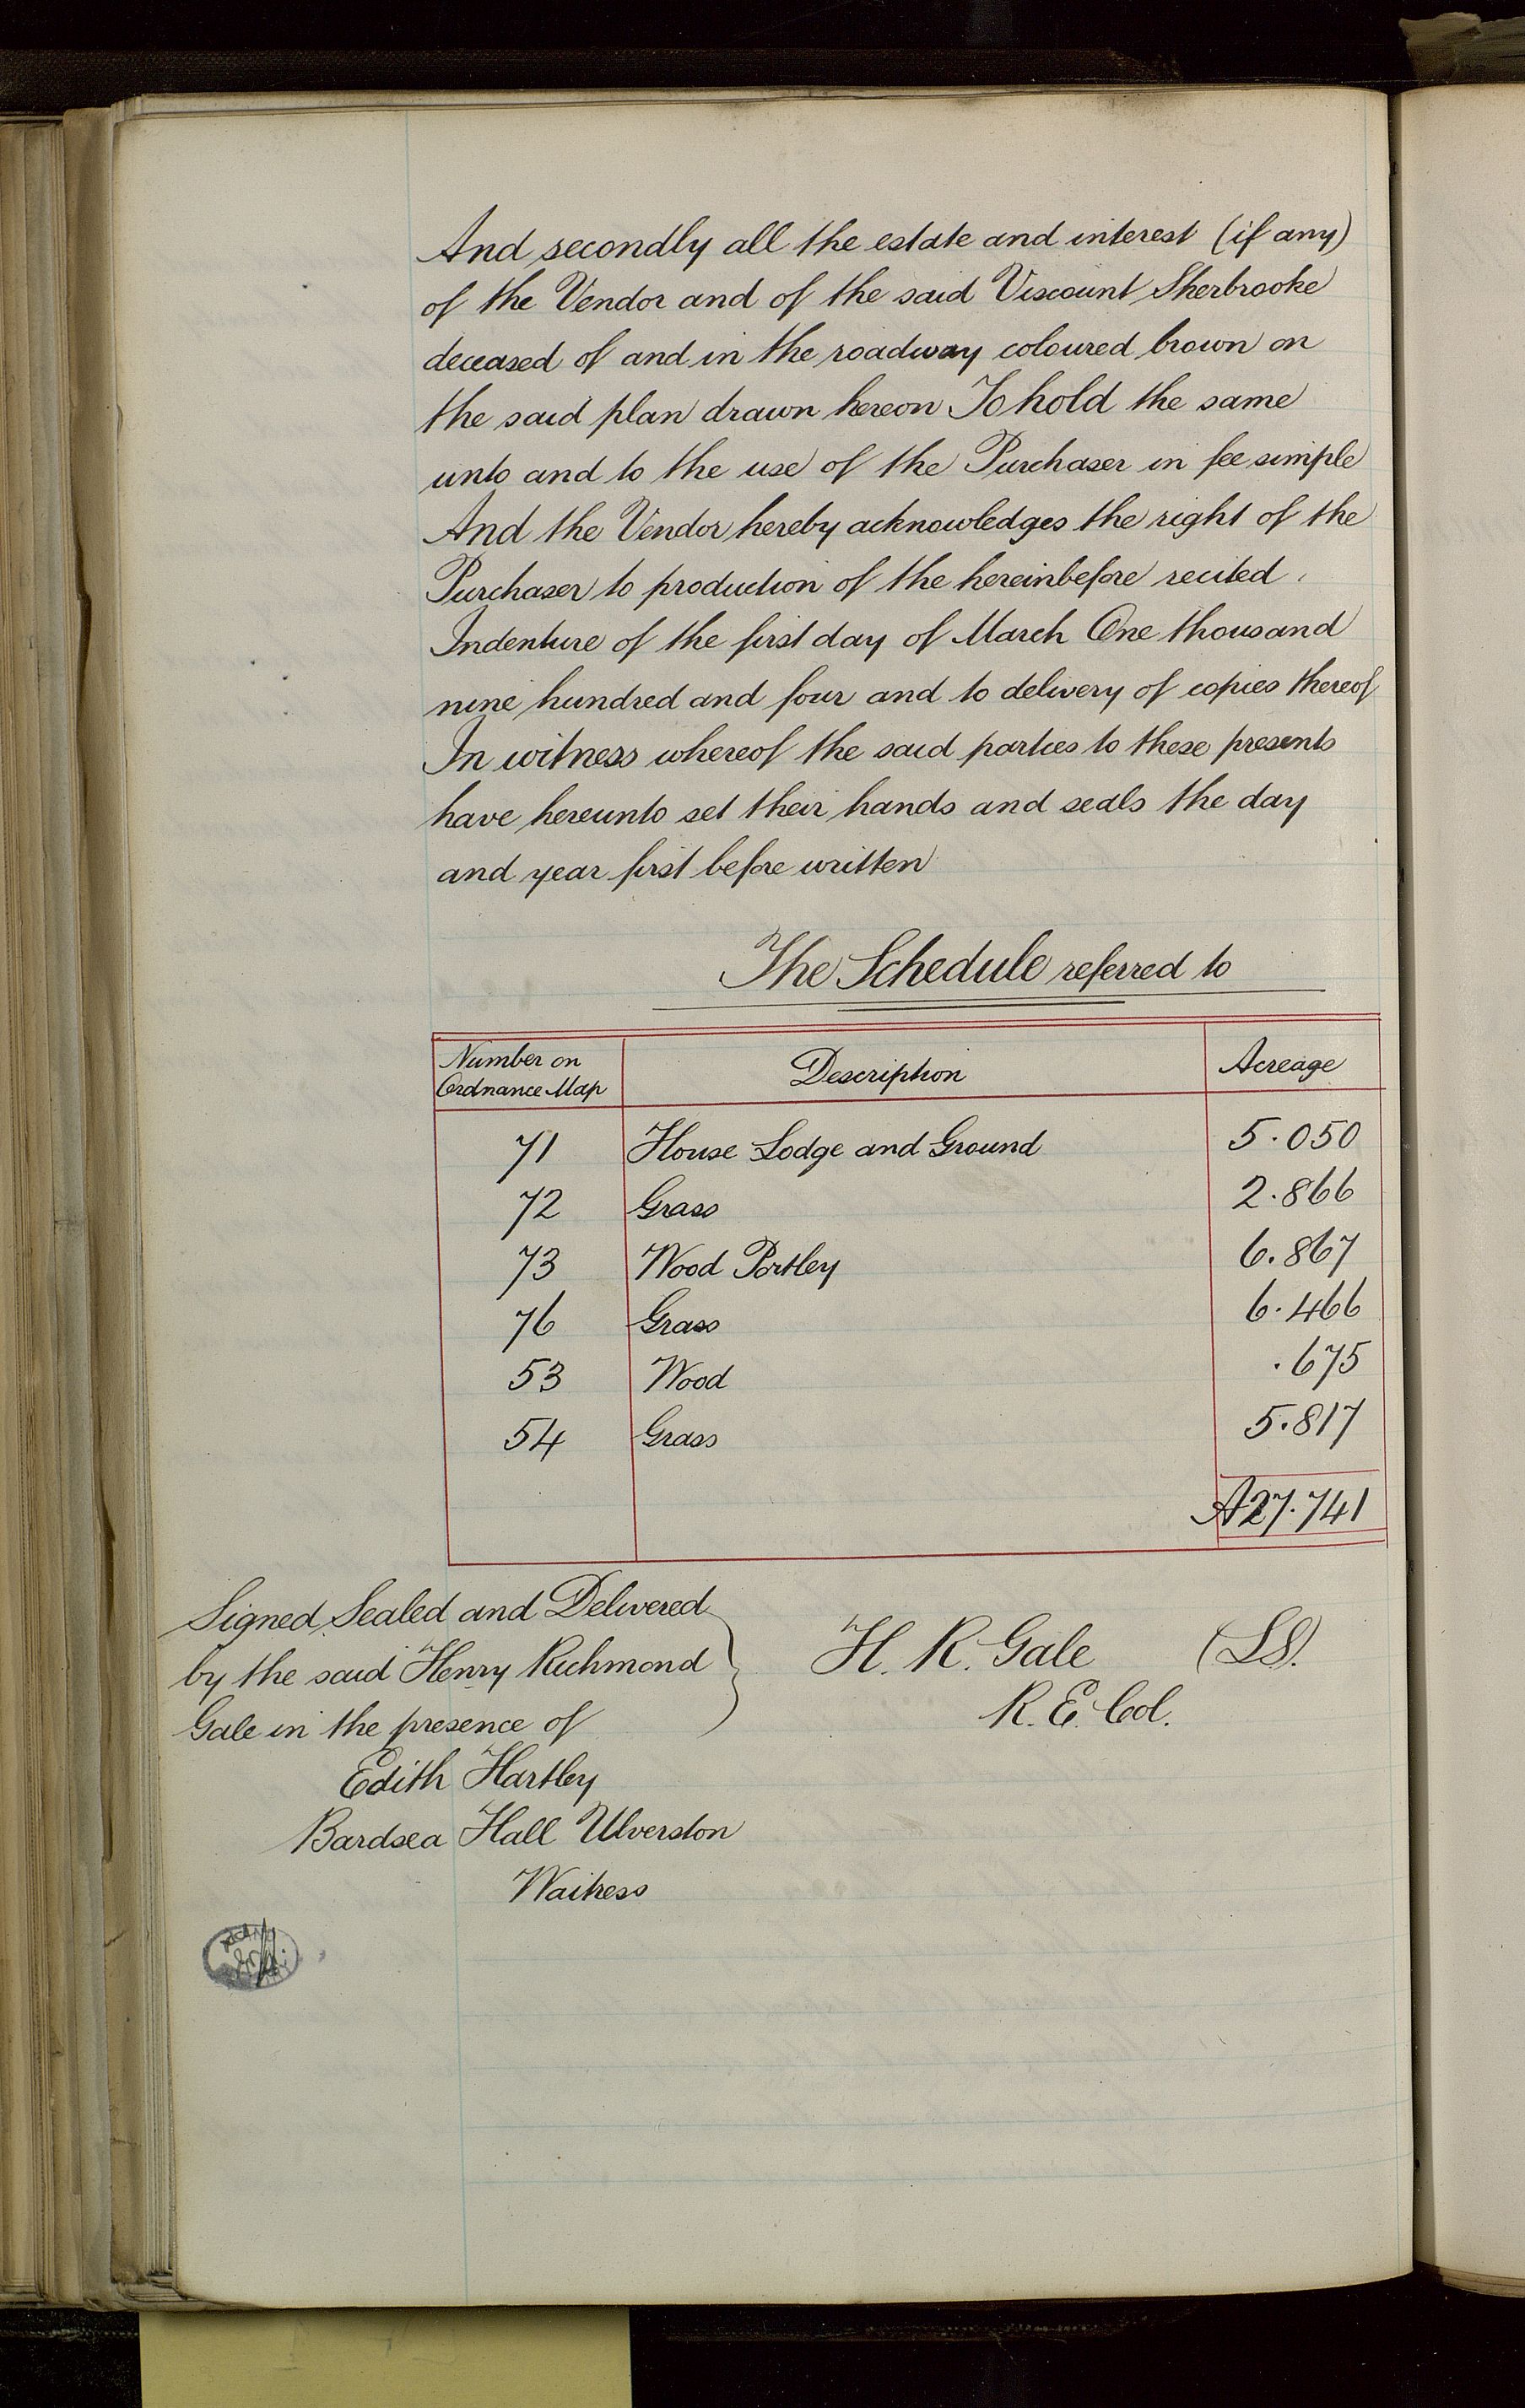 And secondly all the estate and interest (if any)
of the Vendor and of the said Viscount Sherbrooke
deceased of and in the roadway coloured brown on
the said plan drawn hereon To hold the same
unto and to the use of the Purchaser in fee simple
And the Vendor hereby acknowledges the right of the
Purchaser to production of the hereinbefore recited
Indenture of the first day of March One thousand
nine hundred and four and to delivery of copies thereof
In witness whereof the said parties to these presents
have hereunto set their hands and seals the day
and year first before written
The Schedule referred to
Number on Ordnance Map Description Acreage
71 House Lodge and Ground 5.050
72 Grass 2.866
73 Wood Portley 6.867
76 Grass 6.466
53 Wood .675
54 Grass 5.817
A27.741
Signed Sealed and Delivered
by the said Henry Richmond
Gale in the presence of
H. R. Gale (LS).
R. E. Col.
Edith Hartley
Bardsea Hall Ulverston
Waitress